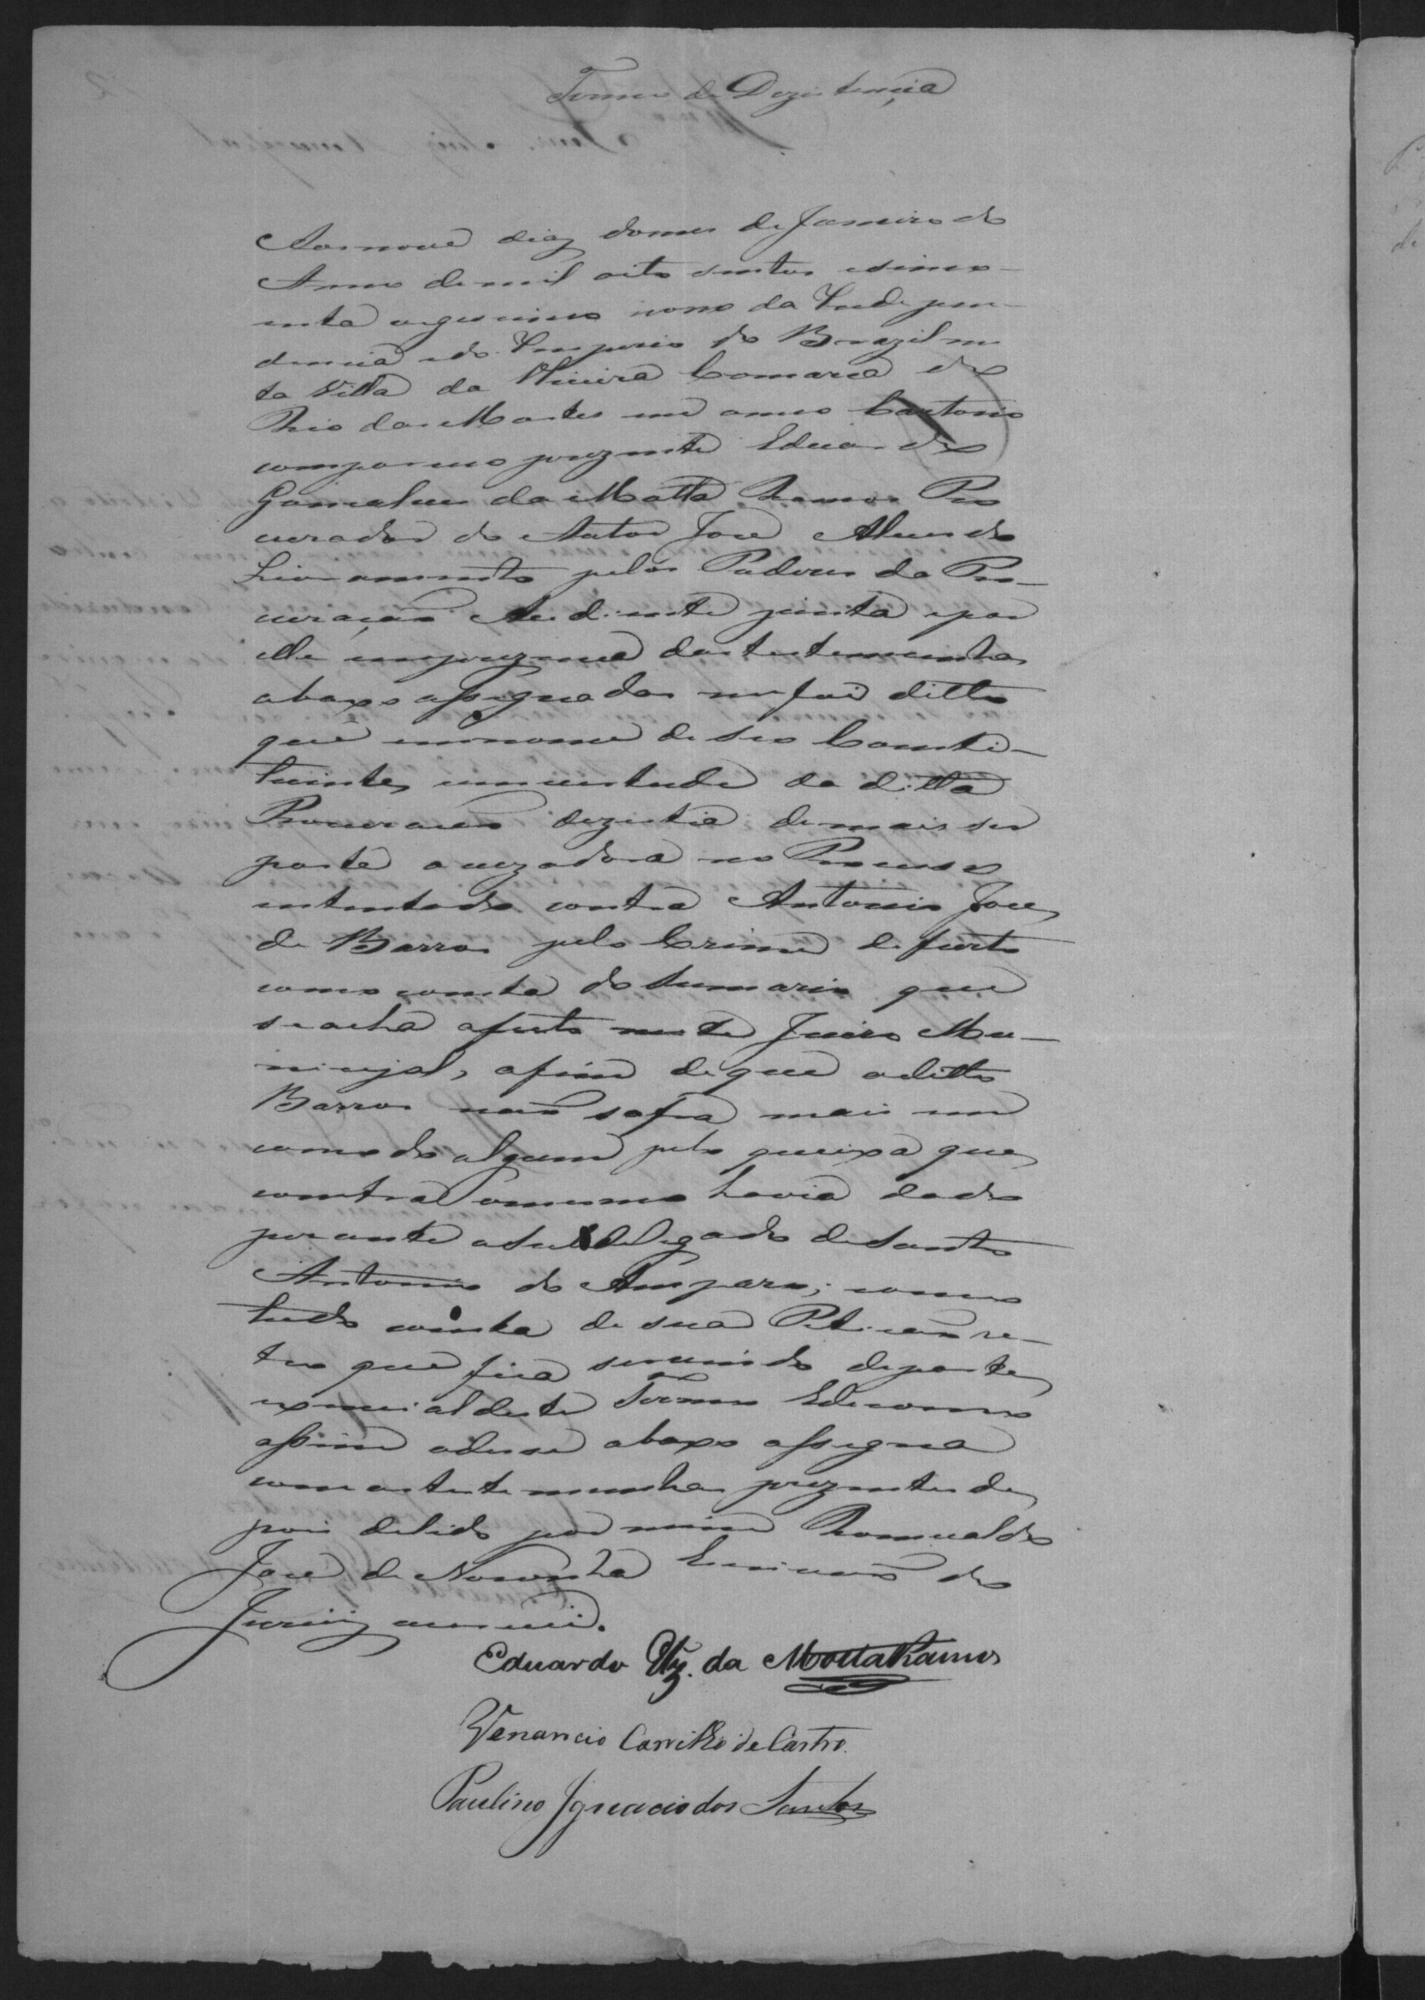 Termo de Dezistencia
Aos nove dias do mes de Janeiro do
Anno de mil oito sentos e sinco-
enta vigessimo nono da Indepen-
dencia e do Imperio do Brazil nes
ta Villa da Oliveira Comarca do
Rio das Mortes em o meo Cartorio
compareceo prezente Eduardo
Gonsalves da Motta Ramos Pro
curador do Autor Jose Alves do
Livramento pelos Poderes da Pro-
curaçaõ Audiante junta e por
elle em prezença das testemunhas
abaxo assignadas me foi ditto
que em nome de seo Consti-
tuinte, em virtude da ditta
Procuracaõ dezistia de mais ser
parte acuzadora no Processo
intentado contra Antonio Joze
de Barros pelo Crime de furto
como consta do Sumario que
se acha afecto neste Juizo Mu-
nicipal, afim de que o ditto
Barros naõ sofra mais in
comodo algum pela queixa que
contra o mesmo havia dado
perante o Subdelegado de Santo
Antonio do Amparo; como
tudo consta de sua Peticaõ re-
tro que fica servindo de parte
essencial deste Termo E de como
assim o disse abaxo assigna
com as testemunhas prezentes de
pois de lido por mim Romualdo
Joze de Noronha Escrivaõ do
Jury, escrevi.
Eduardo Glz. da Motta Ramos
Venancio Carrilho de Castro.
Paulino Ignacio dos Santos